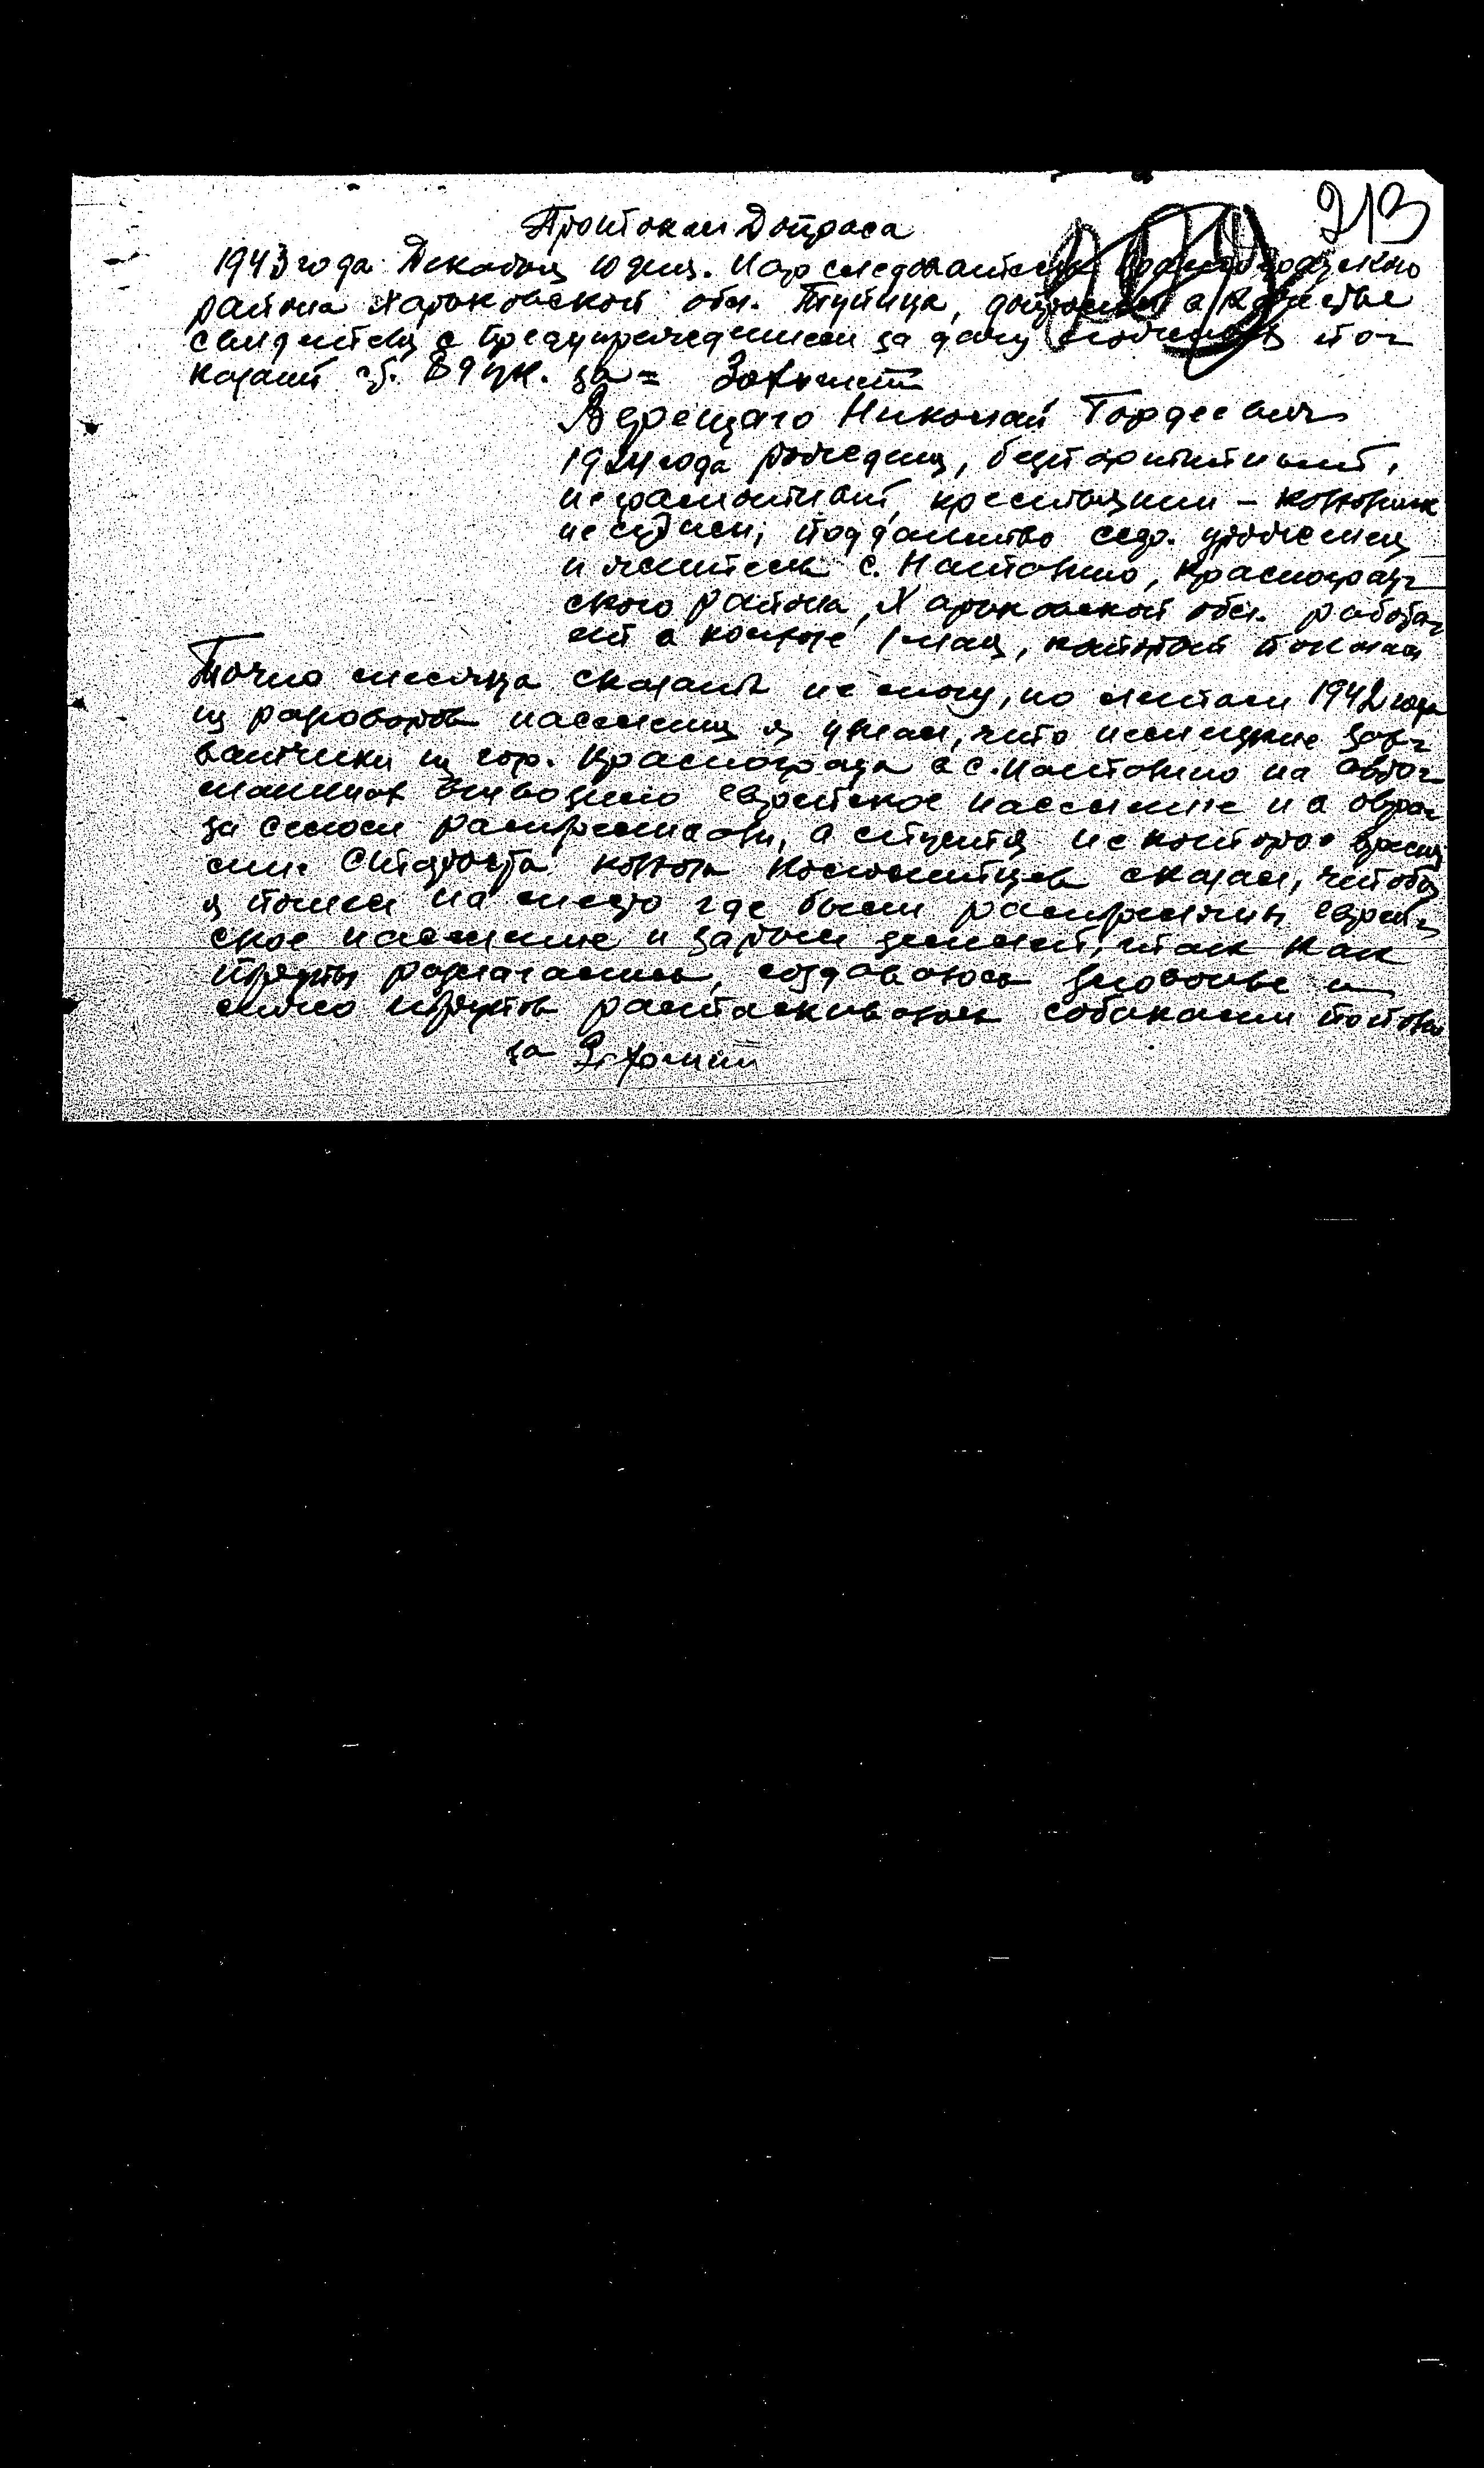 213
Протокол Допроса
1943 года Декабря 10 дня. Нарследователь Красноградского
района Харьковской обл. Тупица, допросил в качестве
свидетеля с предупреждением за дачу ложных по-
казаний об. 89 ук. за =
Верещаго Николай Гордеевич
1924 года рождения, беспартийный,
неграмотный, крестьянин –
не судим, подданство ссср. уроженец
и житель с. Наталино, Красноград-
ского района, Харьковской обл. работа-
ет в колхозе 1 мая, который показал
Точно месяца сказать не могу, но летом 1942 года
из разговоров населения я узнал, что немецкие зах-
ватчики из гор. Краснограда в с. Наталино на авто-
машинах вывозило еврейское население и в овра-
за селом расстреляли, а спустя некоторое время
мне староста колхоза сказал, чтобы
я пошел на место где были расстреляны еврей-
ское население и зарыл землей, так как
трупы разлагались, создавалось зловонье и
мясо трупов растаскивалось собаками
за